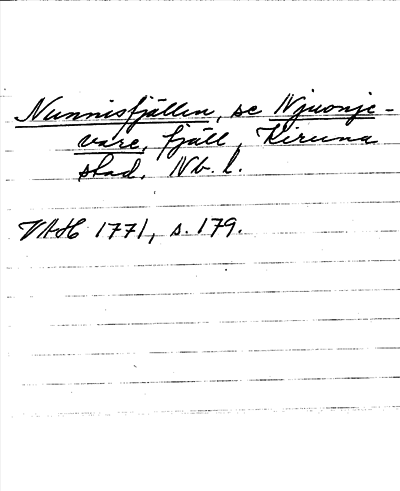 Nunnisfjällen, se Njuonje-
vare, fjäll, Kiruna
stad. Nb. l.
VAH 1771, s. 179.